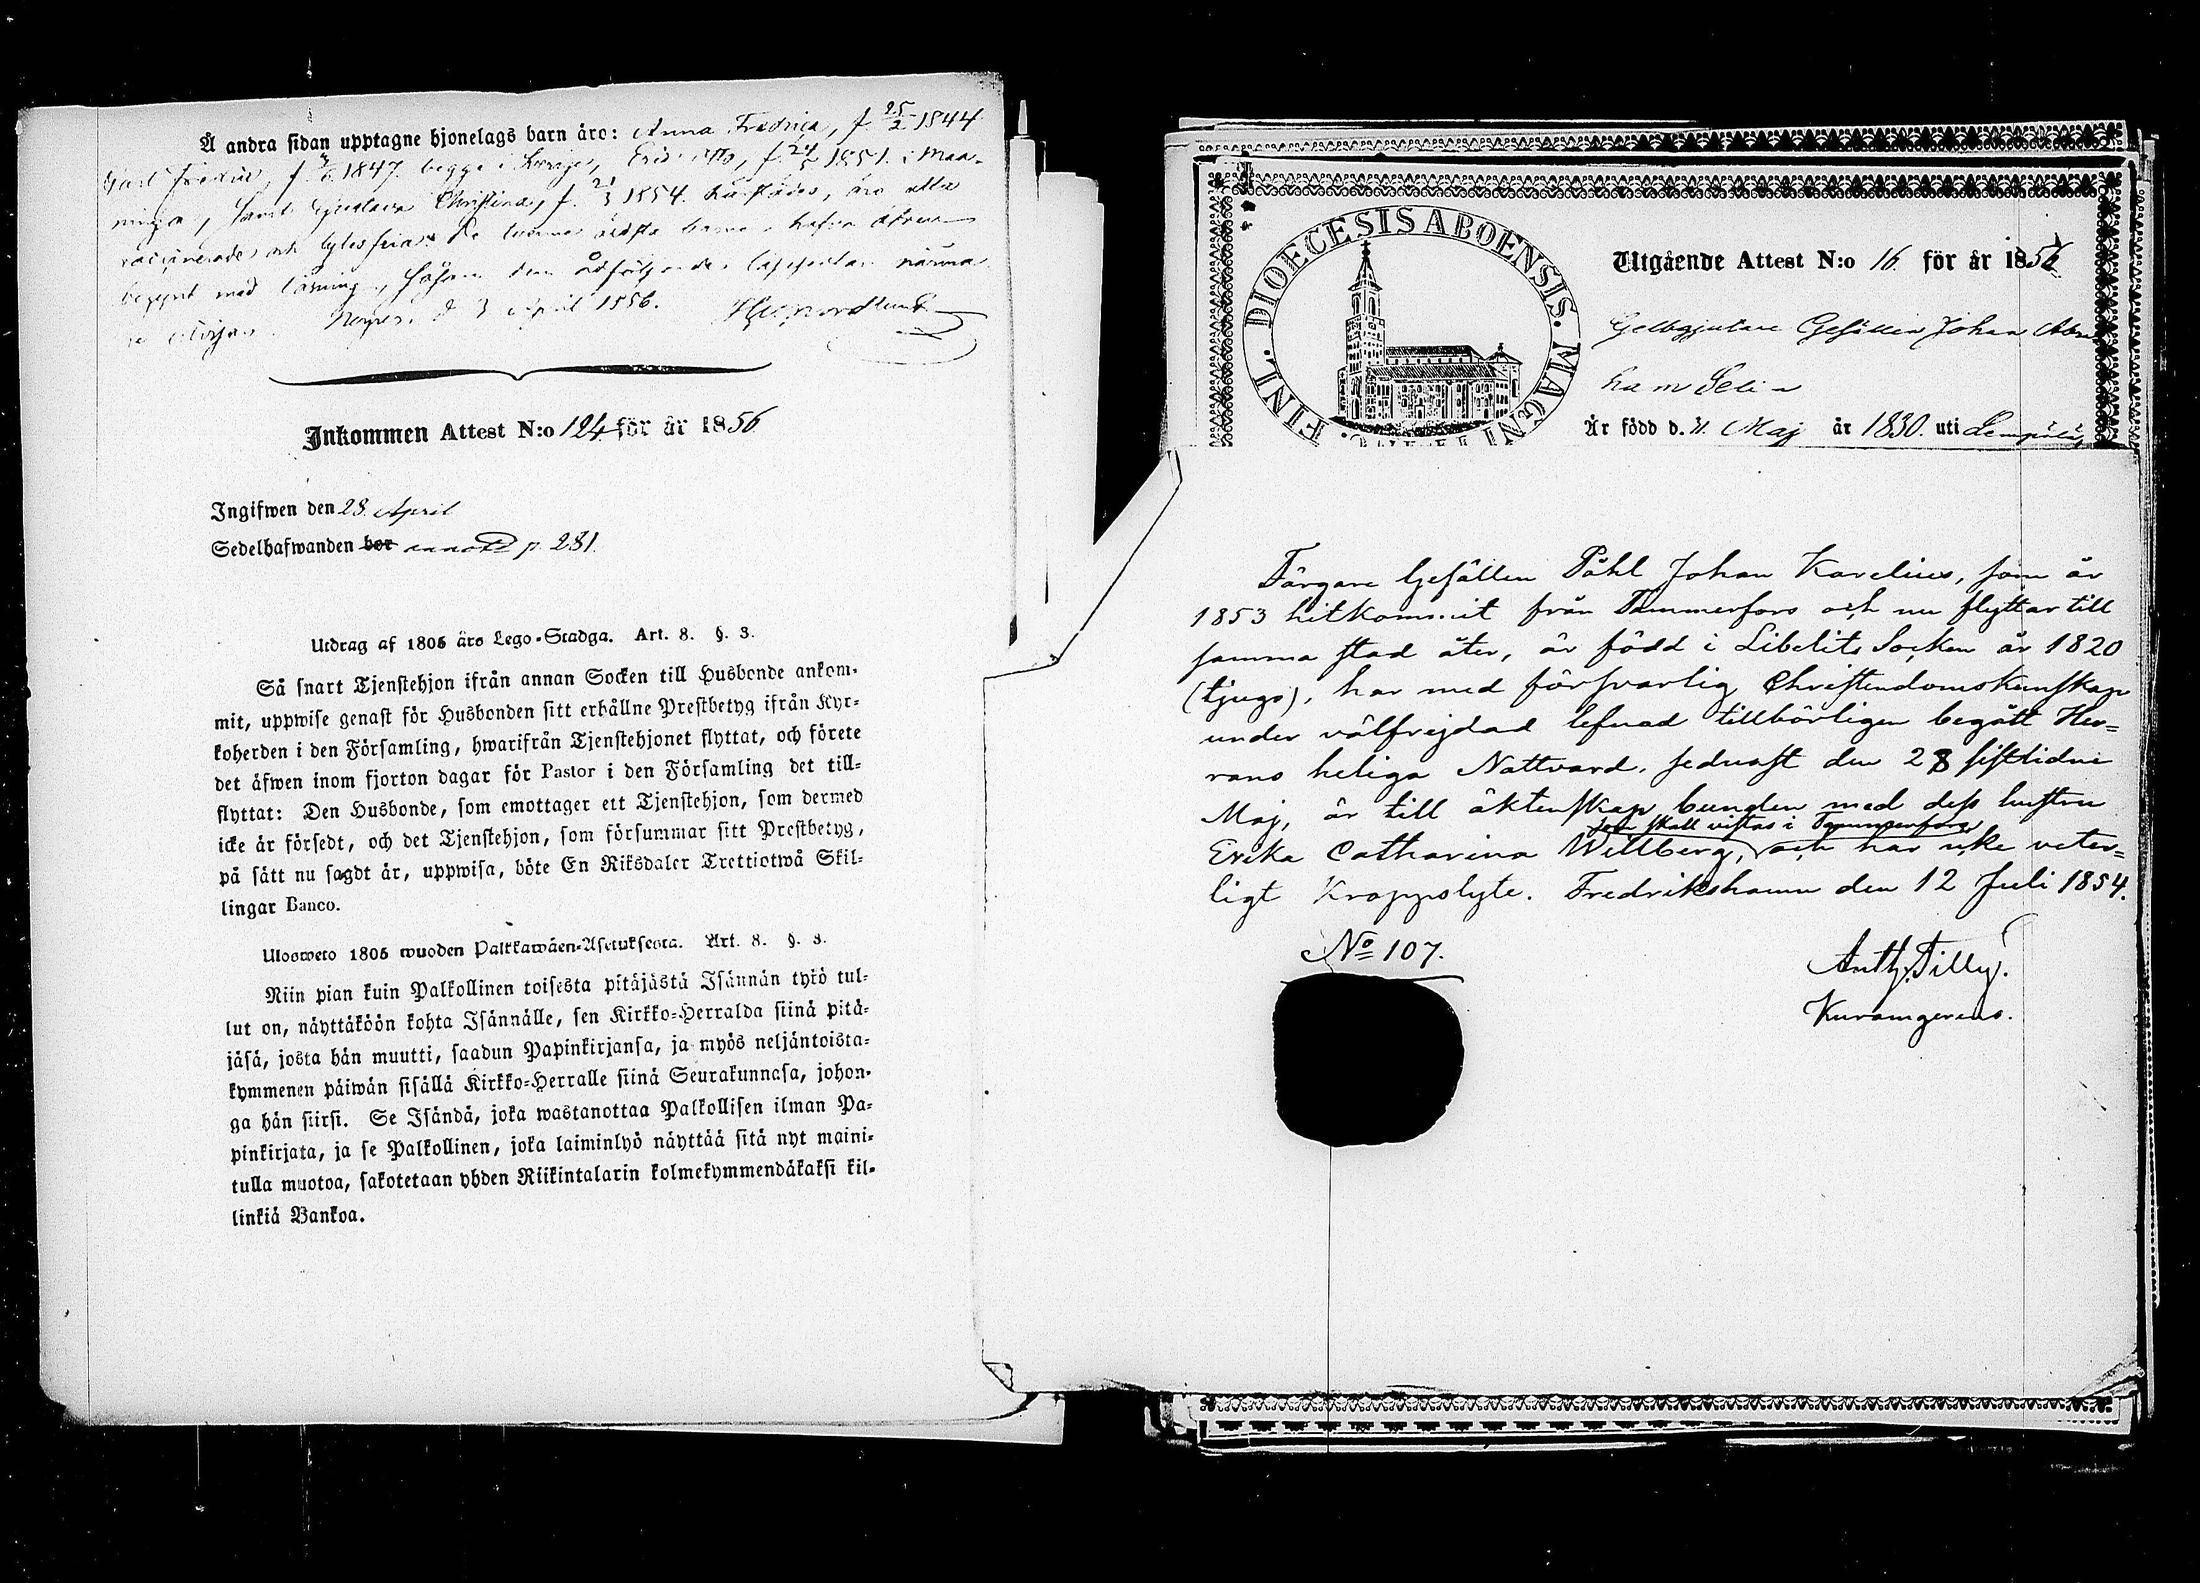 Å andra sidan upptagne hjonelags barn äro: Anna Fredrica, f. 25/2 1844
Carl Fredric, f. 1847. begge i Sverige, Eric Otto, f. 24/5 1851. i Maa-
ninga, samt Gustava Christina, f. 21/3 1854. härstädes, äro alla
vaccinerade och lytesfria. De tvenne äldsta barna hafva äfven
begynt med läsning, såsom den åtföljande
d. 3 April 1856. Nordlund
Inkommen Attest N:o 124 för år 1856
Ingifwen den 28. April
Sedelhafwanden bor annot. p. 281.
Utdrag af 1805 års Lego-Stadga. Art. 8. §. 3.
Så snart Tjenstehjon ifrån annan Socken till Husbonde ankom-
mit, uppwise genast för Husbonden sitt erhållne Prestbetyg ifrån Kyr-
koherden i den Församling, hwarifrån Tjenstehjonet flyttat, och förete
det äfwen inom fjorton dagar för Pastor i den Församling det till-
flyttat: Den Husbonde, som emottager ett Tjenstehjon, som dermed
icke är försedt, och det Tjenstehjon, som försummar sitt Prestbetyg,
på sätt nu sagdt är, uppwisa, böte En Riksdaler Trettiotwå Skil-
lingar Banco.
Ulosweto 1805 wuoden Palkkawäen-Asetuksesta. Art. 8. §. 3.
Niin pian kuin Palkollinen toisesta pitäjästä Isännän tykö tul-
lut on, näyttäköön kohta Isännälle, sen Kirkko-Herralda siinä pitä-
jäsä, josta hän muutti, saadun Papinkirjansa, ja myös neljäntoista-
kymmenen päiwän sisällä Kirkko-Herralle siinä Seurakunnasa, johon-
ga hän siirsi. Se Isändä, joka wastanottaa Palkollisen ilman Pa-
pinkirjata, ja se Palkollinen, joka laiminlyö näyttää sitä nyt maini-
tulla muotoa, sakotetaan yhden Riikintalarin kolmekymmendäkaksi kil-
linkiä Bankoa.
FINL. DIOECESIS ABOENSIS. MAGNI
Utgående Attest N:o 16 för år 185
Gelbgjutare Gesällen Johan Abra
ham Selin
Är född d. 31. Maj år 1830. uti Lempälä,
Färgare Gesällen Påhl Johan Karelius, som år
1853 hitkommit från Tammerfors och nu flyttar till
samma stad åter, är född i Libelits Socken år 1820
(tjugo), har med försvarlig Christendomskunskap
under välfrejdad lefnad tillbörligen begått Her=
rans heliga Nattvard, sednast den 28 sistlidne
Maj, är till äktenskap bunden med dess hustru
som skall vistas i Tammerfors,
Erika Catharina Willberg, och har icke veter=
ligt Kroppslyte. Fredrikshamn den 12 Juli 1854.
No 107.
Anth. Tilly.
Kuramgerens.